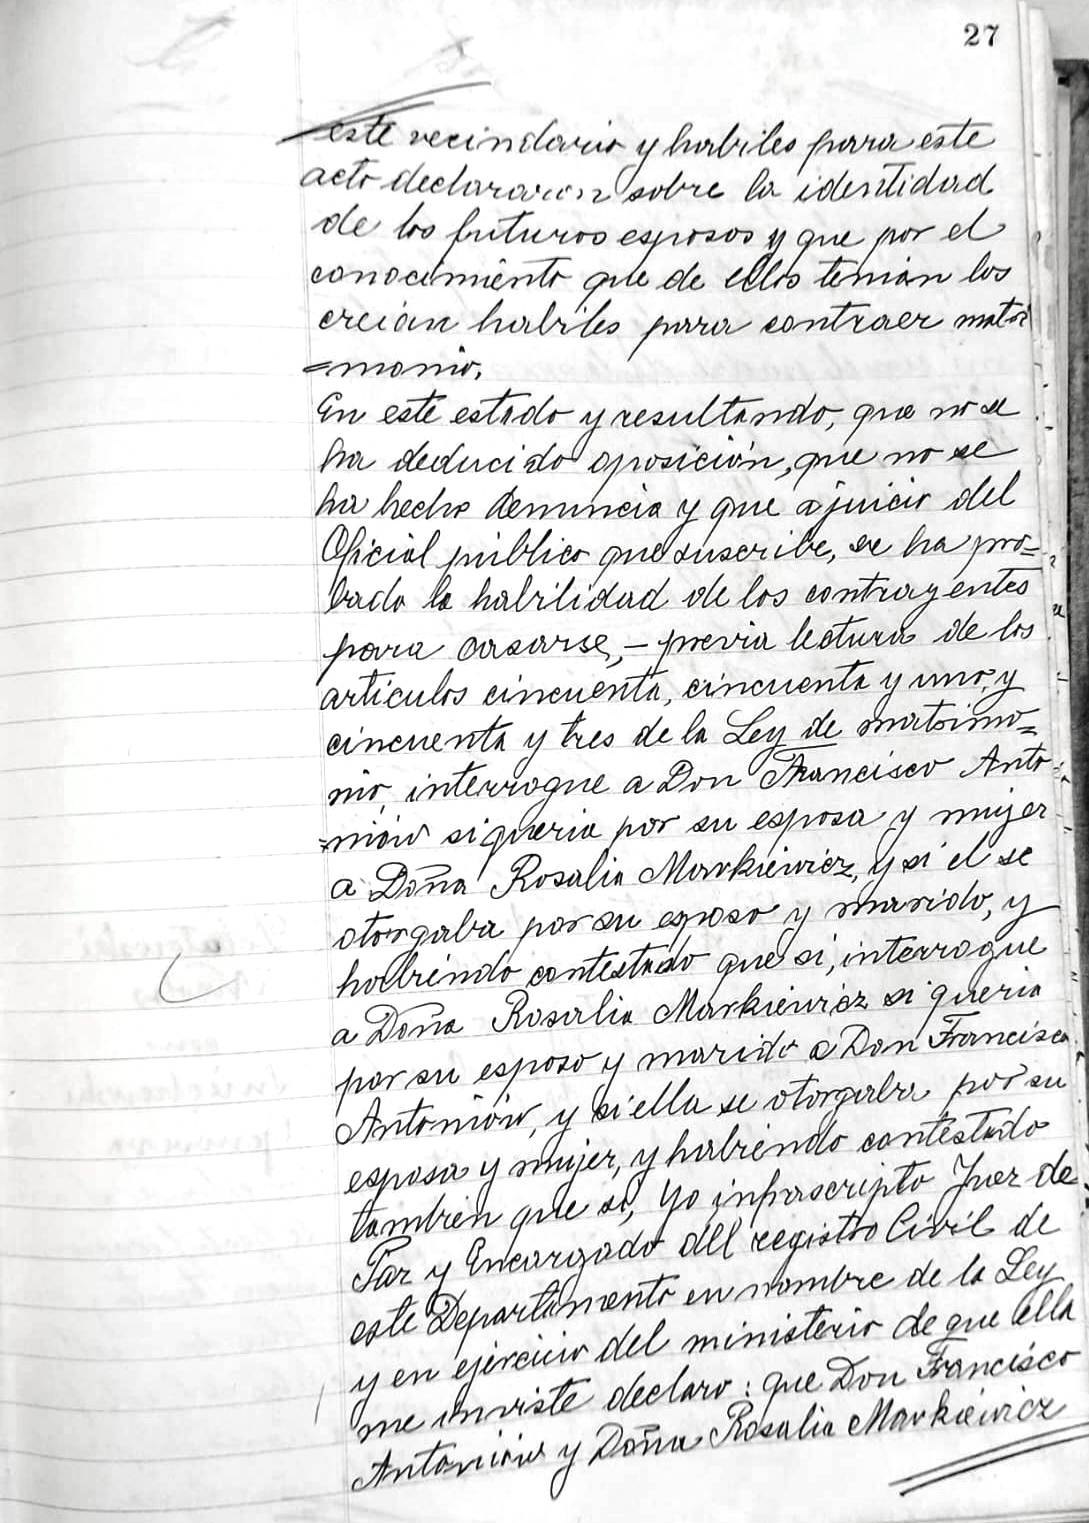 27
este vecindario y habiles para este
acto declararon sobre la identidad
de los futuros esposos y que por el
conocimiento que de ellos tenian los
creian habiles para contraer matri
=monio.
En este estado y resultando, que no se
ha deducido oposición, que no se
ha hecho denuncia y que a juicio del
Oficial público que suscribe, se ha pro=
bado la habilidad de los contrayentes
para casarse, – previa lectura de los
articulos cincuenta, cincuenta y uno, y
cincuenta y tres de la Ley de matrimo=
nio, interrogue a Don Francisco Anto
=niów si queria por su esposa y mujer
a Doña Rosalia Markiewicz, y si el se
otorgaba por su esposo y marido, y
habiendo contestado que si, interrogue
a Doña Rosalia Markiewicz si queria
por su esposo y marido a Don Francisco
Antoniów, y si ella se otorgaba por su
esposa y mujer, y habiendo contestado
tambien que si, Yo infrascripto Juez de
Paz y Encargado del registro Civil de
este Departamento en nombre de la Ley
y en ejercicio del ministerio de que ella
me inviste declaro: que Don Francisco
Antoniów y Doña Rosalia Markiewicz